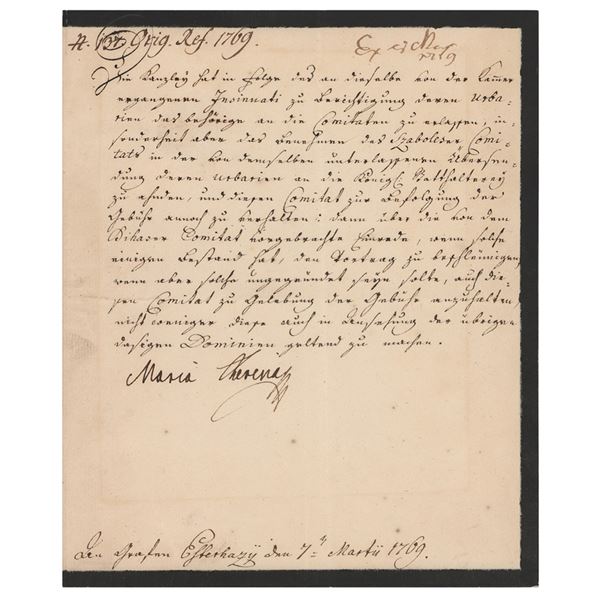 #. 137. Orig. Ref. 1769.
Die Kanzley hat in Folge des an dieselbe von der Kammer
ergangenen Insinuati zu berichtigung deren Urba-
rien das behörige an die Comitaten zu erlassen, in-
sonderheit aber das benehmen des Szaboleser Comi-
tats in der von demselben unterlassenen Übersen-
dung deren Urbarien an die Königl. Statthalterey
zu ahnden, und diesen Comitat zur befolgung der
Gebühr annoch zu verhalten: dann über die von dem
Bihaser Comitat vorgebrachte Einrede, wenn solche
einigen bestand hat, den Vortrag zu beschleinigen,
wenn aber solche ungegründet seyn solte, auch die-
sen Comitat zu Gelebung der Gebühr anzuhalten,
nicht weniger diese auch in Ansehung der übrigen
dasigen Dominien geltend zu machen.
Maria Theresia
An Grafen Esterhazÿ den 7t Martii 1769.